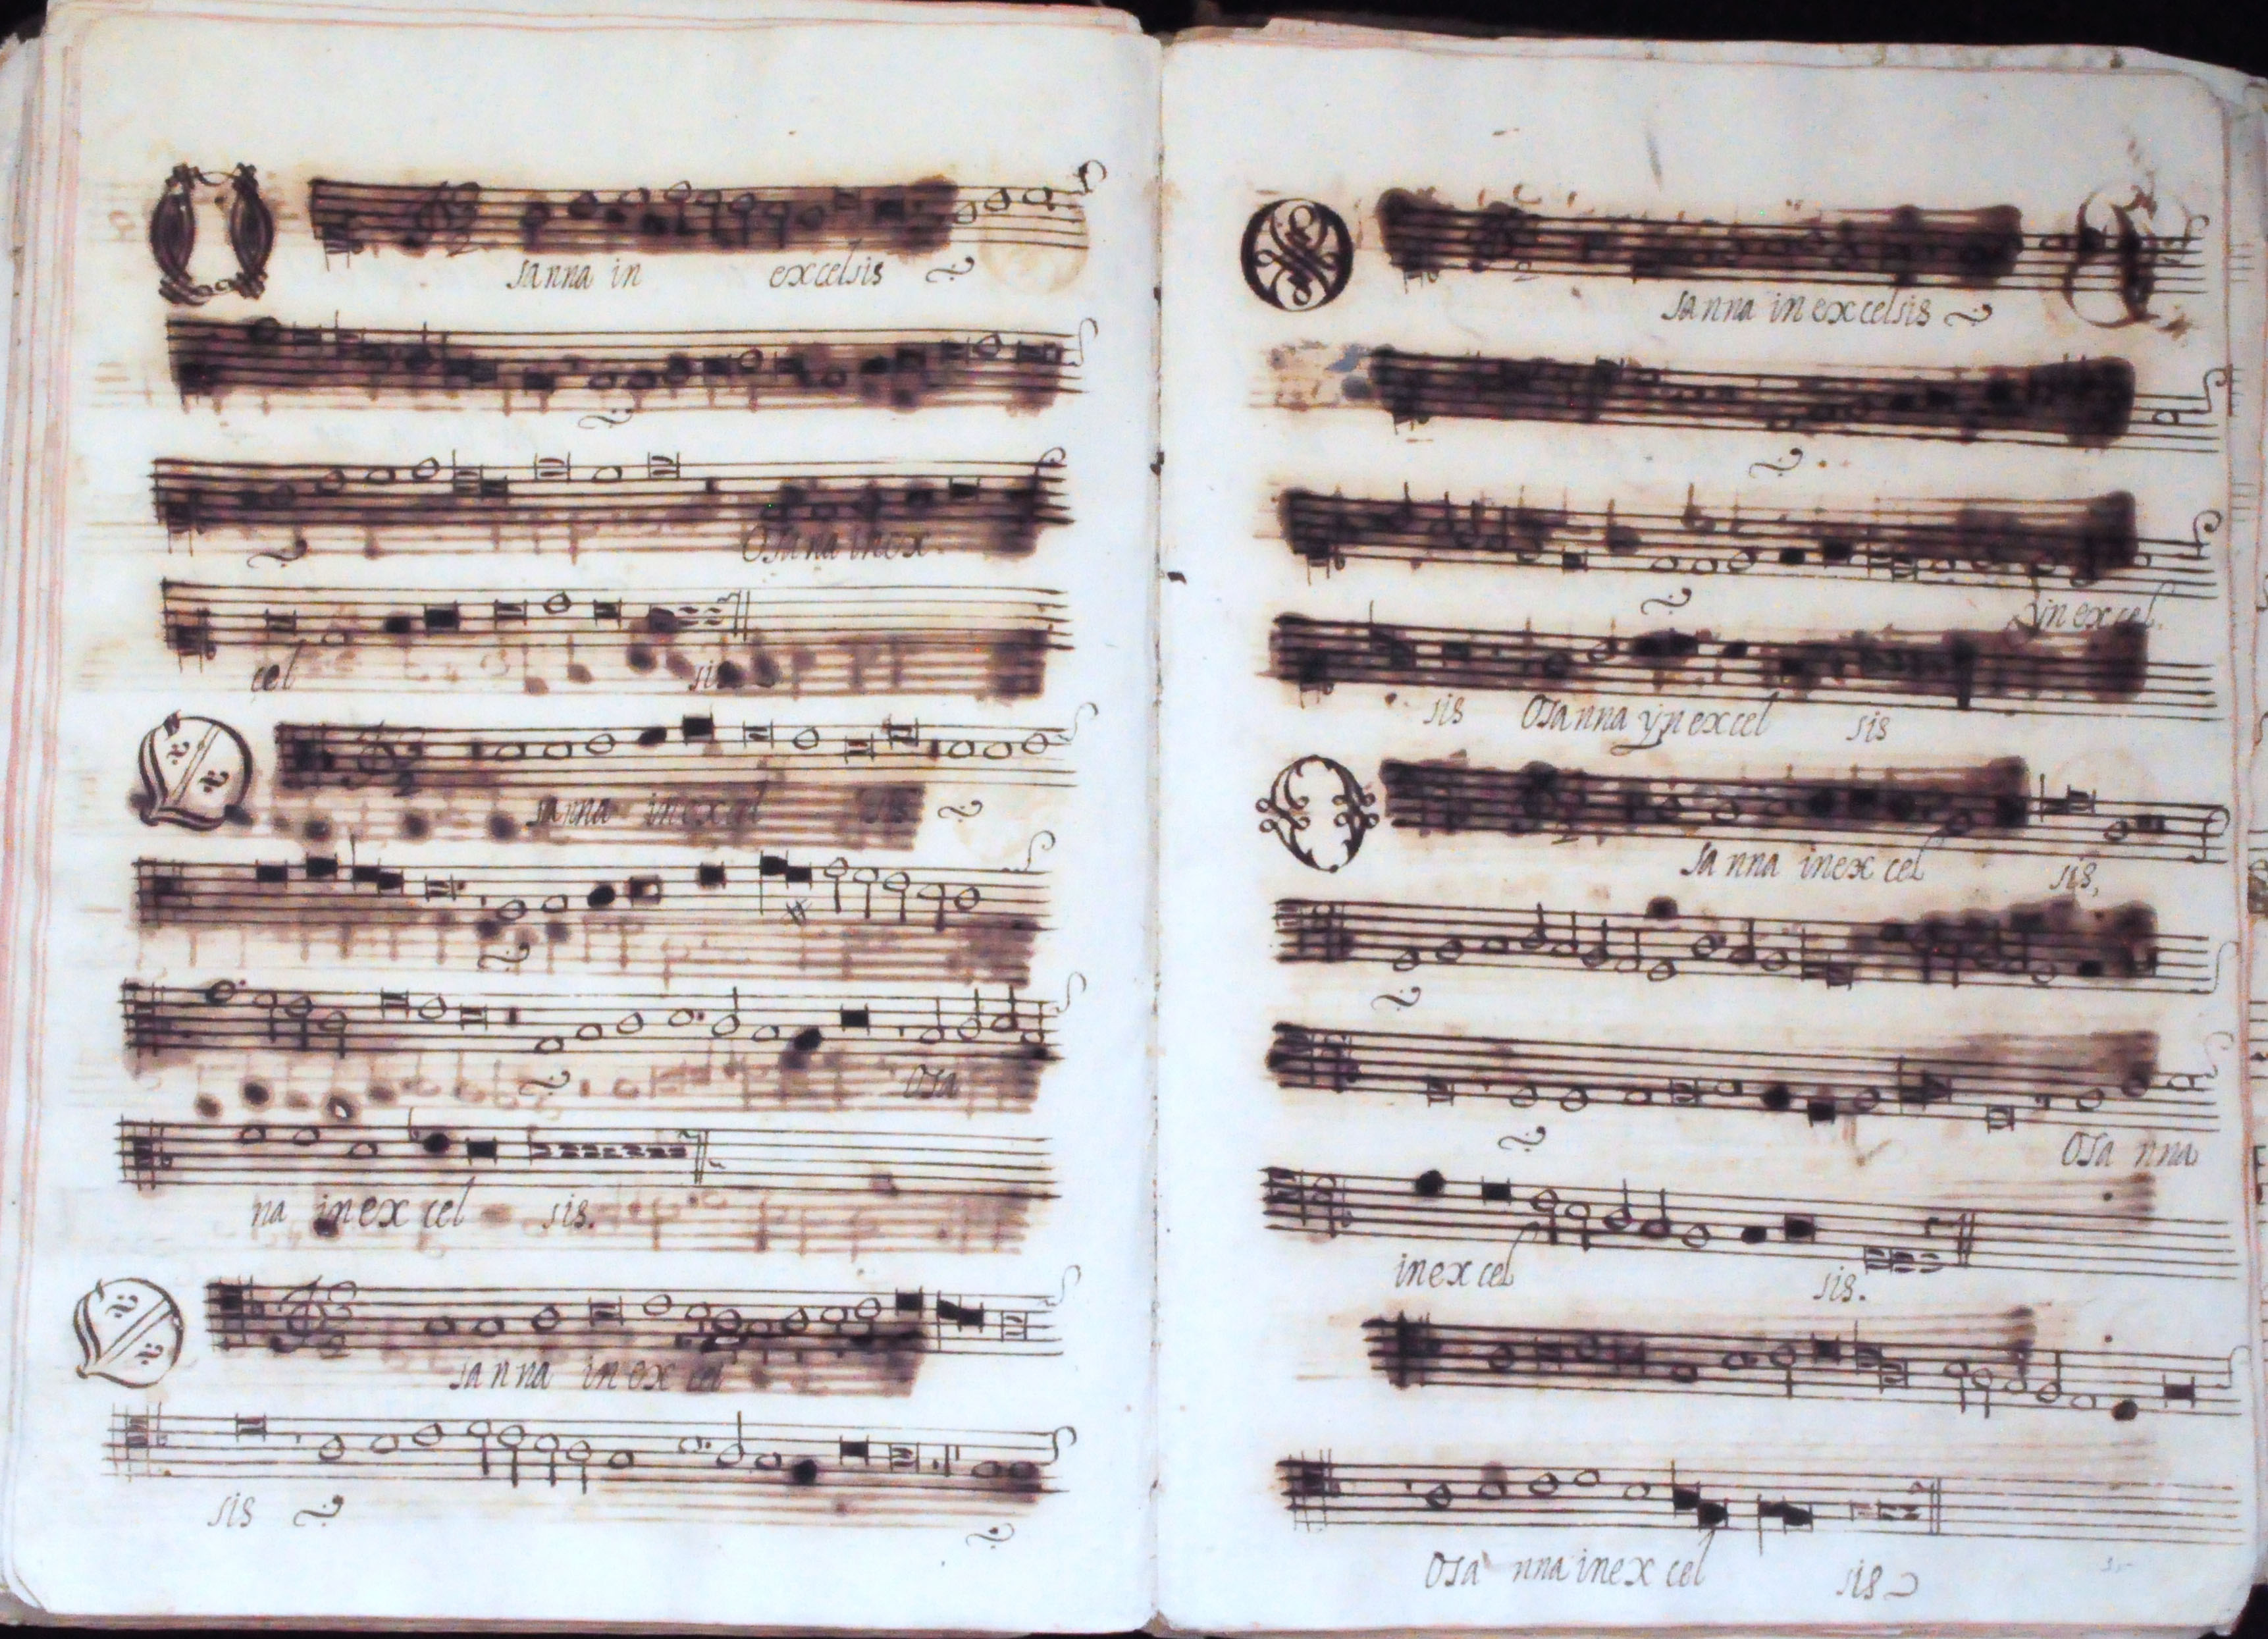 O sanna in excelsis
Osanna in ex
cel sis
O sanna in excel sis
Osa
na in excel sis.
O sanna in excel
sis
O sanna in excelsis
yn excel.
sis Osanna yn excel sis
O sanna in excel sis,
Osanna
in excel sis.
Osanna in excel sis